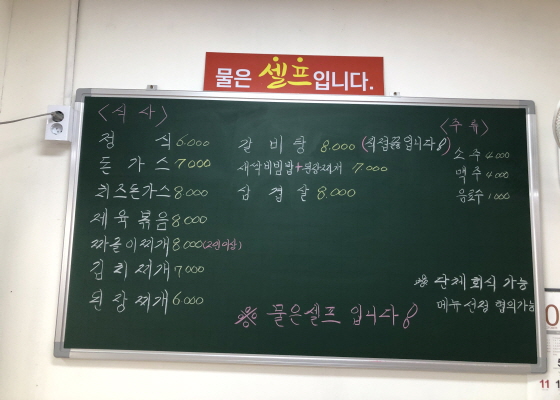 물은 셀프입니다.
<식사>
정식 6.000
돈가스 7000
치즈돈가스 8.000
제육볶음 8000
짜글이찌개 8000 (2인이상)
김치찌개 7000
된장찌개 6000
갈비탕 8.000 (직접끓입니다)
새싹비빔밥+된장찌개 7.000
삼겹살 8.000
<주류>
소주 4.000
맥주 4.000
음료수 1.000
※ 단체회식 가능
메뉴선정 협의가능
※ 물은셀프 입니다
0
11